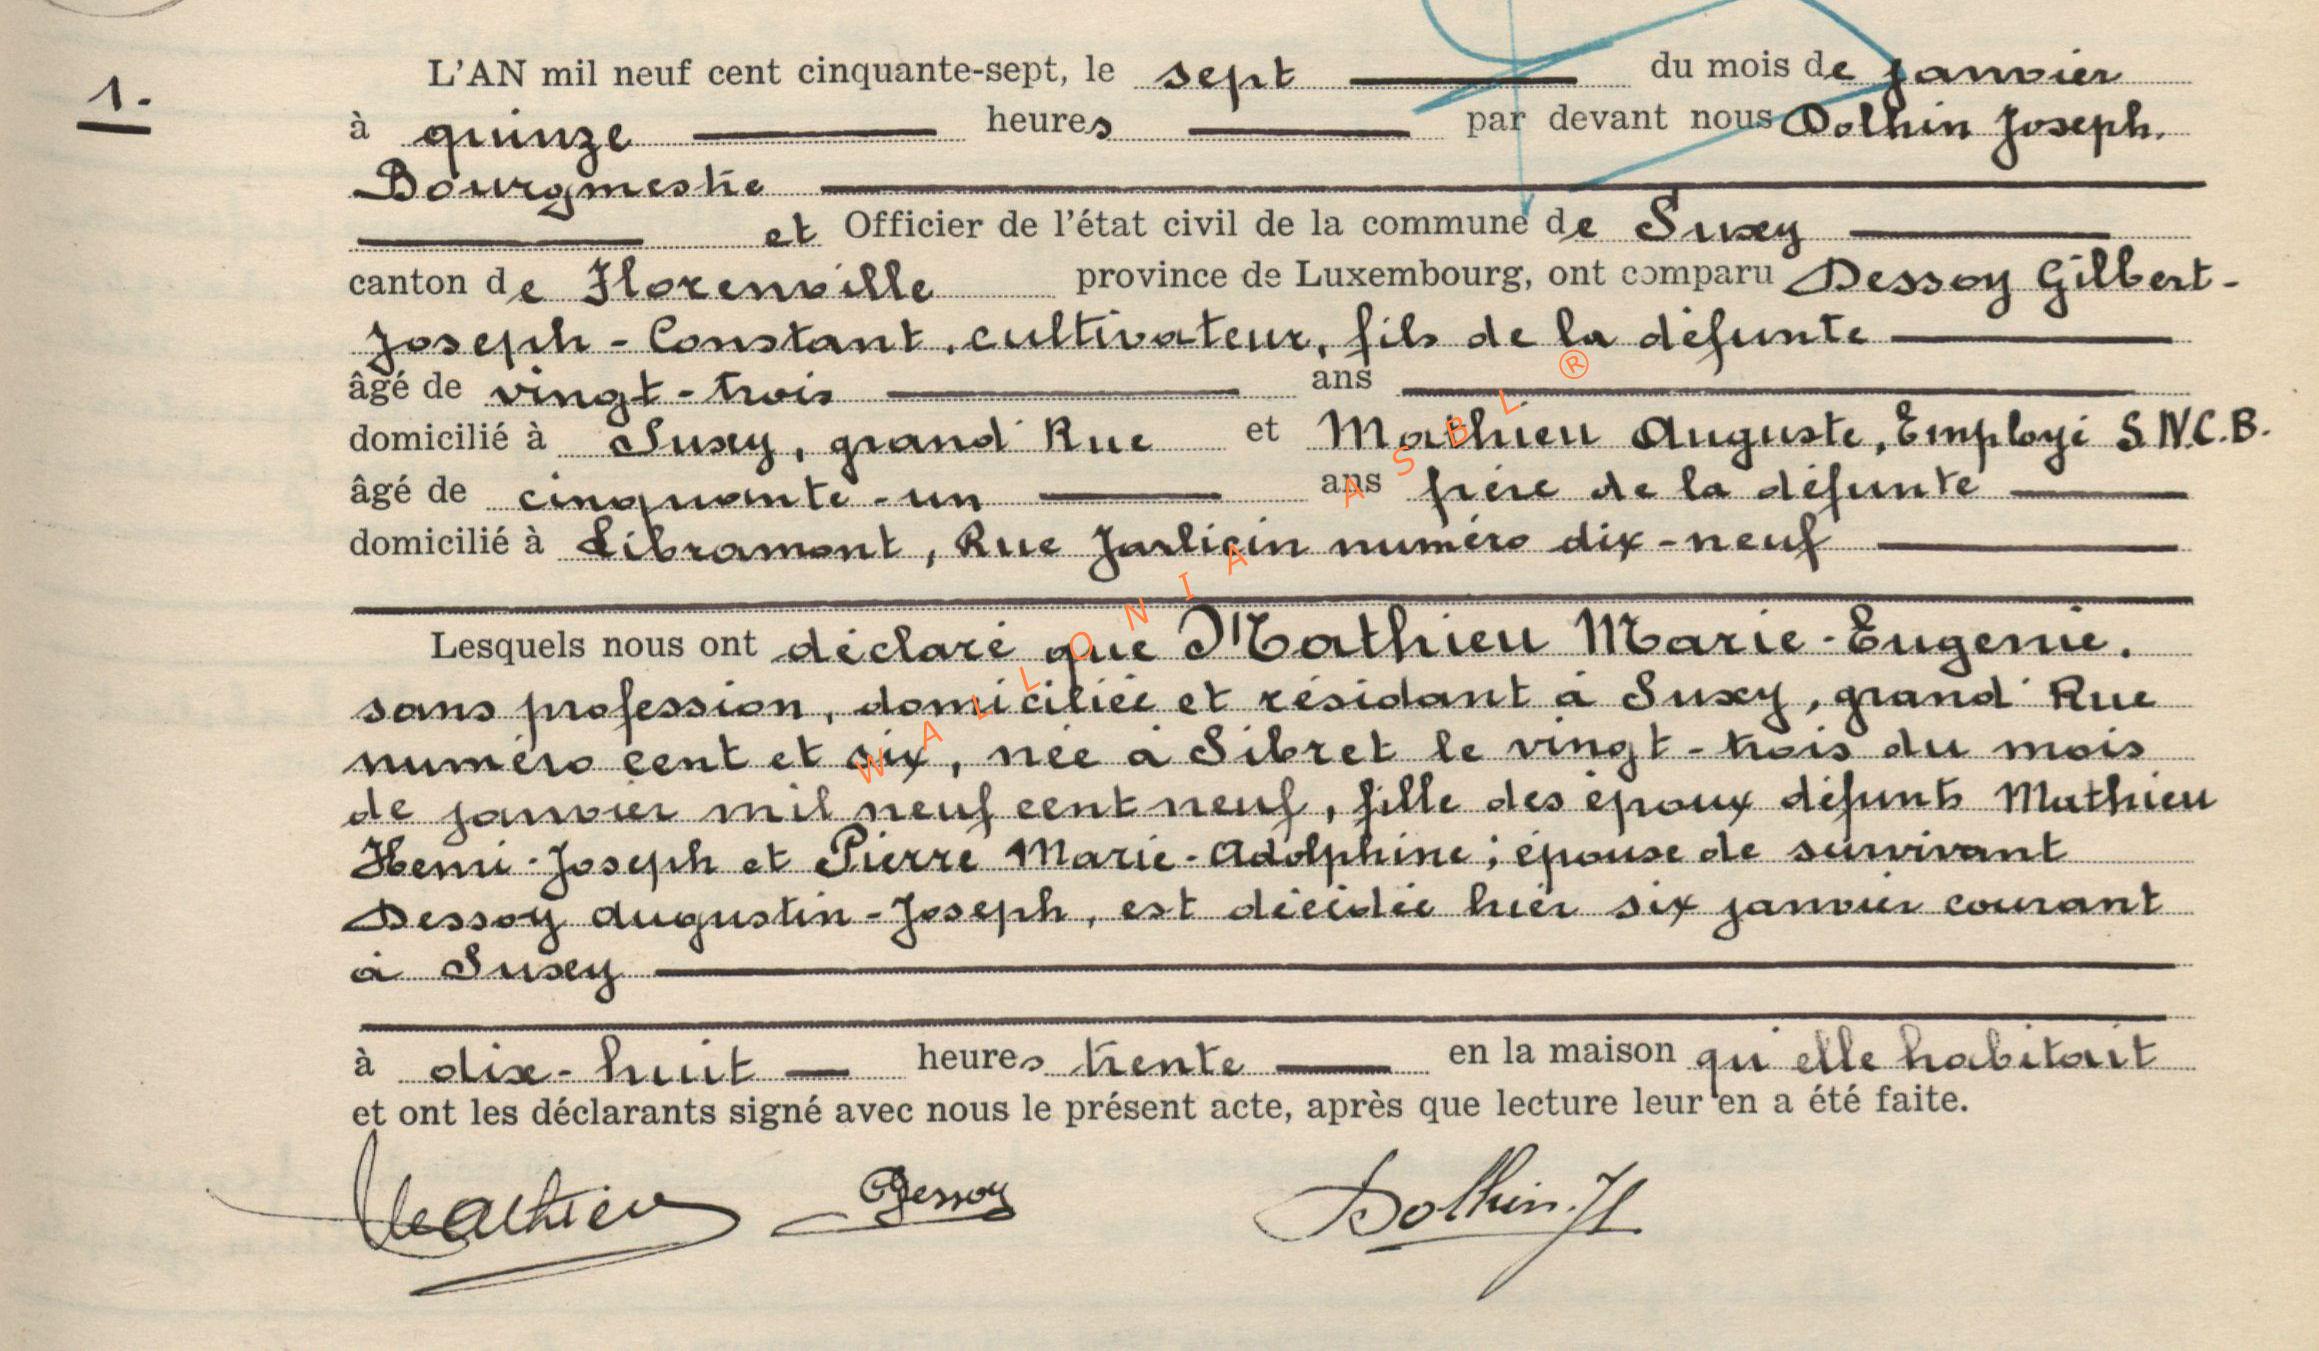 1.
L'AN mil neuf cent cinquante-sept, le sept du mois de janvier
à quinze heures par devant nous Dolhin Joseph.
Bourgmestre
et Officier de l'état civil de la commune de Suxy
canton de Florenville province de Luxembourg, ont comparu Dessoy Gilbert-
Joseph-Constant, cultivateur, fils de la défunte
âgé de vingt-trois ans
domicilié à Suxy, grand' Rue et Mathieu Auguste, Employé S.N.C.B.
âgé de cinquante-un ans frère de la défunte
domicilié à Libramont, Rue numéro dix-neuf
Lesquels nous ont déclaré que Mathieu Marie-Eugenie.
sans profession, domiciliée et résidant à Suxy, grand' Rue
numéro cent et six, née à Sibret le vingt-trois du mois
de janvier mil neuf cent neuf, fille des époux défunts Mathieu
Henri-Joseph et Pierre Marie-Adolphine; épouse de survivant
Dessoy Augustin-Joseph, est décédée hier six janvier courant
à Suxy
à dix-huit heures trente en la maison qu'elle habitait
et ont les déclarants signé avec nous le présent acte, après que lecture leur en a été faite.
Mathieu GDessoy Dolhin. J
WALLONIA ASBL ®